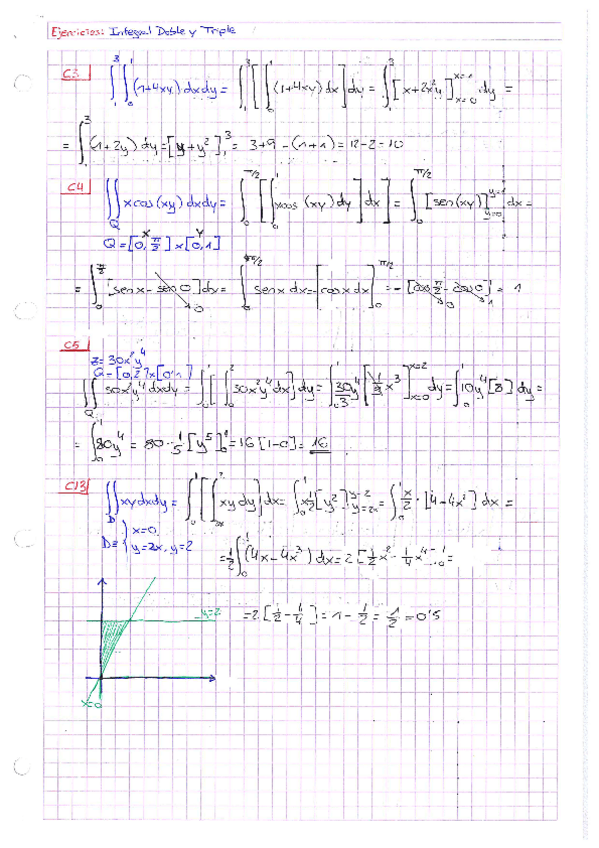 Ejercicios: Integral Doble y Triple
C3 ∫₁³∫₀¹(1+4xy)dxdy = ∫₁³[∫₀¹(1+4xy)dx]dy = ∫₁³[x+2x²y]ₓ₌₀ˣ⁼¹ dy =
= ∫₁³(1+2y)dy = [y+y²]₁³ = 3+9-(1+1) = 12-2 = 10
C4 ∬ xcos(xy)dxdy = ∫₀^π/2[∫₀¹ xcos(xy)dy]dx = ∫₀^π/2[sen(xy)]dx =
Q
Q = [0, π/2] x [0,1]
= ∫₀^π/2[senx - sen0]dx = ∫₀^π/2 senx dx = -[cosx dx]₀^π/2 = -[cos π/2 - cos0] = 1
C5
z = 30x²y⁴
Q = [0,2]x[0,1]
∬ 30x²y⁴dxdy = ∫₀¹[∫₀²30x²y⁴dx]dy = ∫₀¹ 30y⁴/3 [x³]ₓ₌₀ˣ⁼² dy = ∫₀¹10y⁴[8]dy =
Q
= ∫₀¹80y⁴ = 80·1/5[y⁵]₀¹ = 16[1-0] = 16
C13 ∬xydxdy = ∫₀¹[∫₂ₓ²xydy]dx = ∫₀¹ x½[y²] y=2 y=2x = ∫₀¹ x/2·[4-4x²]dx =
D
D≡ { x=0
y=2x, y=2
= 1/2∫₀¹(4x-4x³)dx = 2[1/2x²-1/4x⁴]₀¹ =
= 2[1/2-1/4] = 1-1/2 = 1/2 = 0'5
y=2
x=0